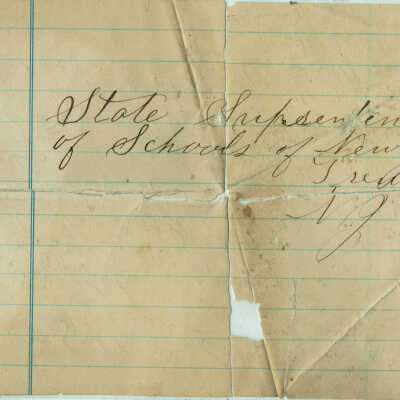 State Superinten
of Schools of New
Tre
N J